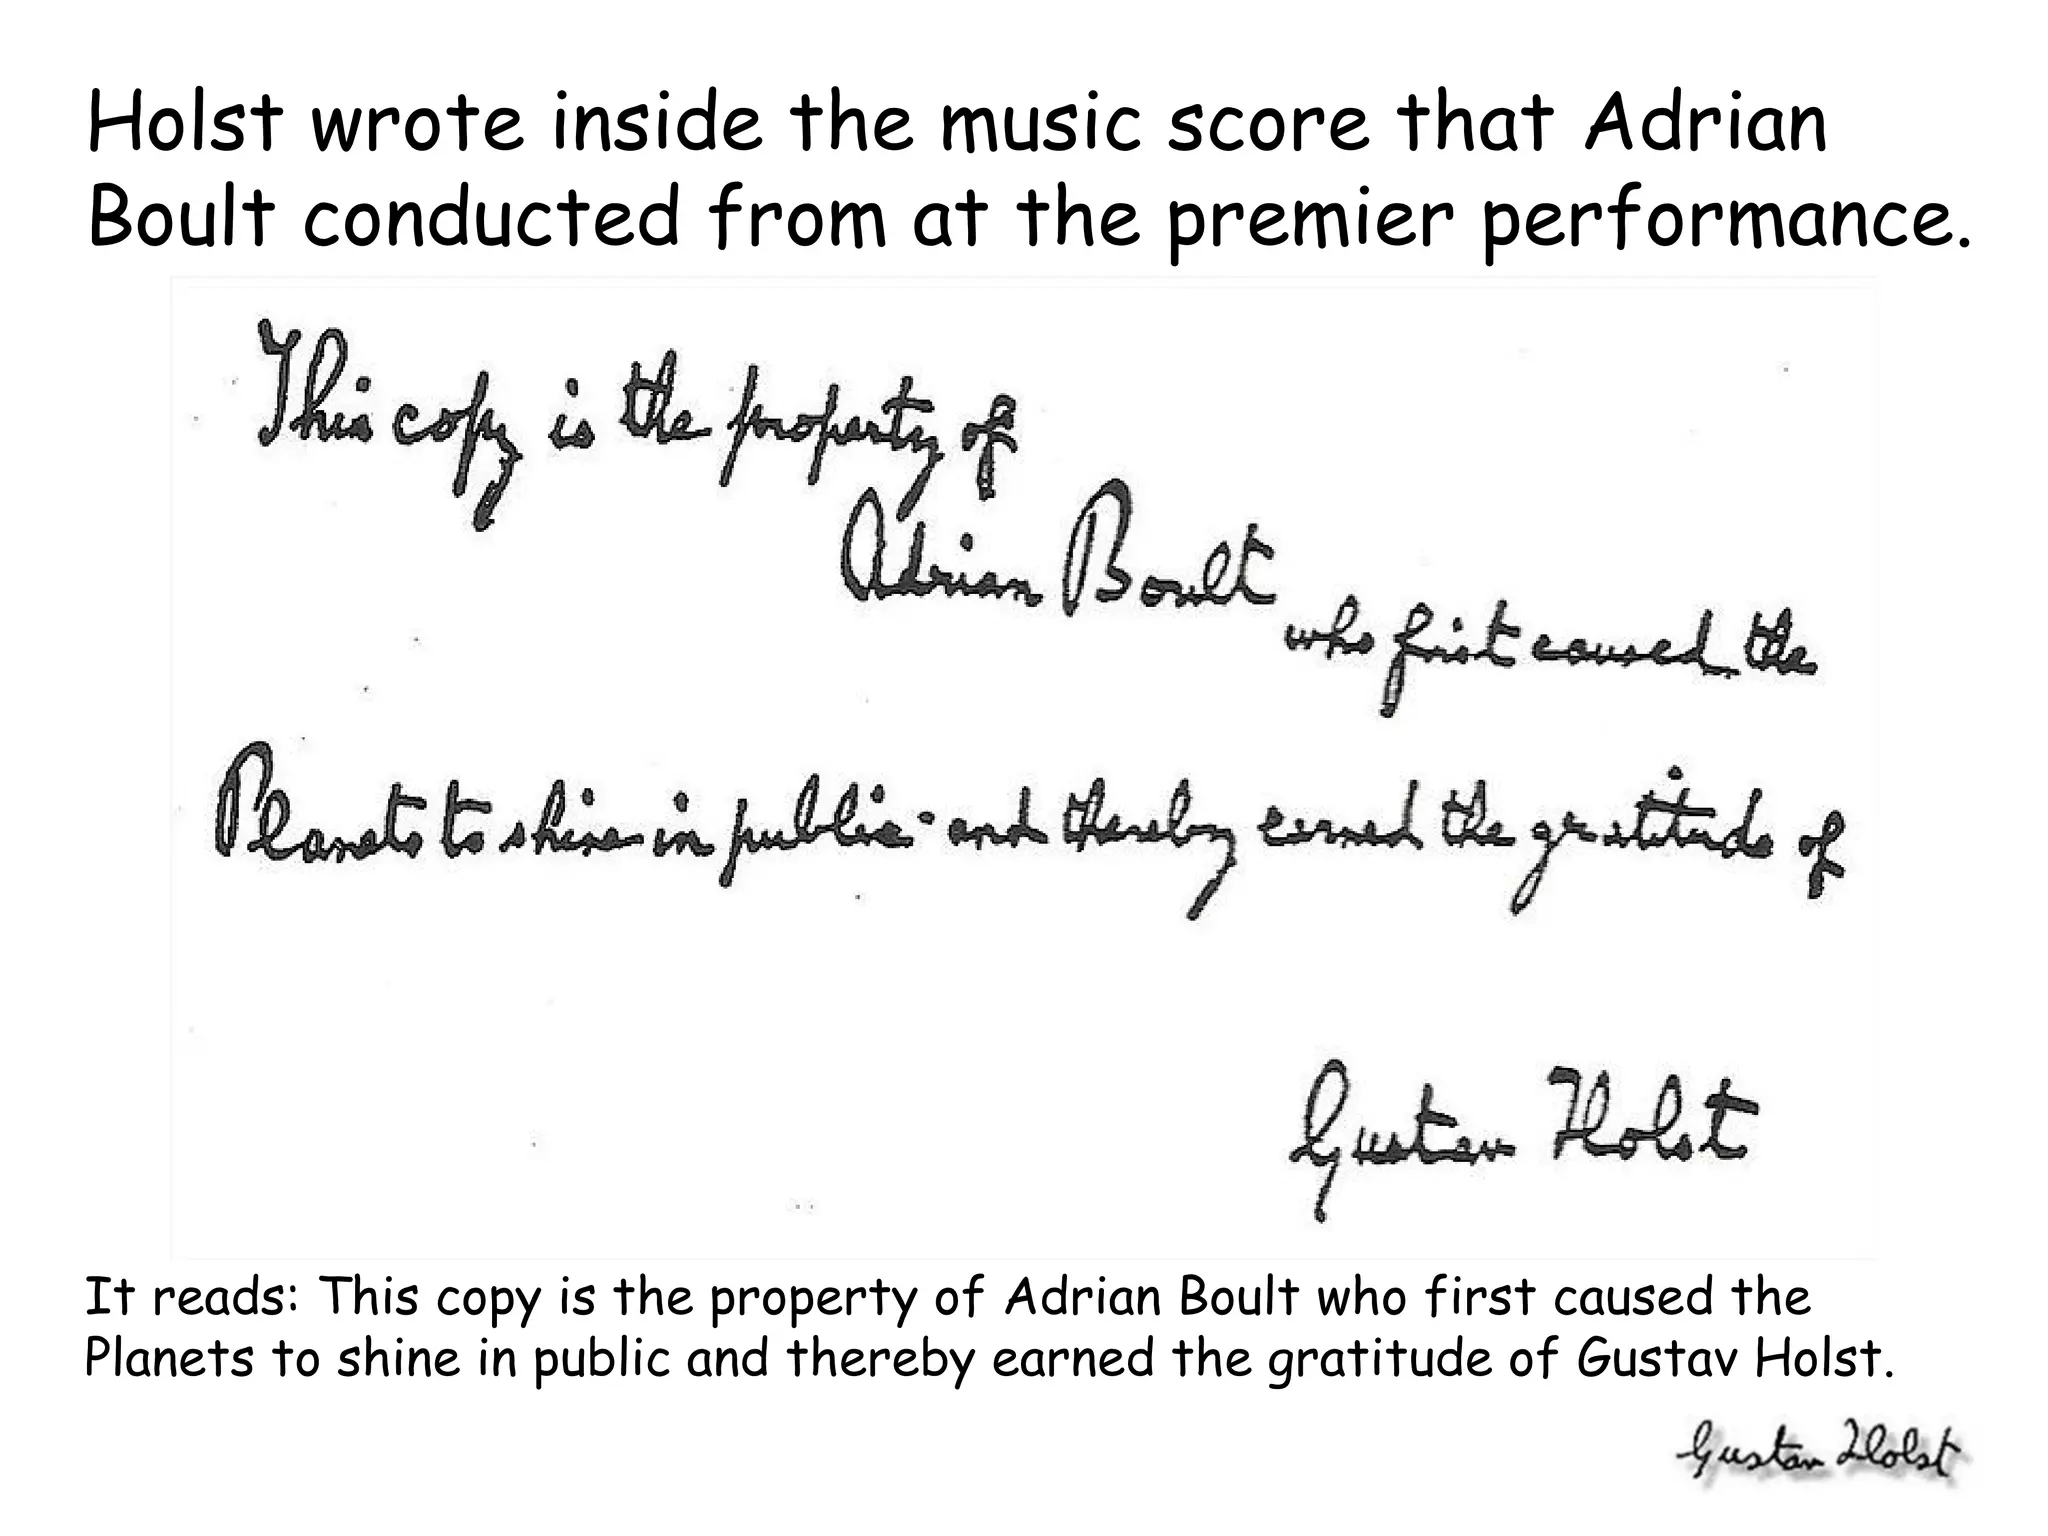 Holst wrote inside the music score that Adrian
Boult conducted from at the premier performance.
This copy is the property of
Adrian Boult
who first caused the
Planets to shine in public and thereby earned the gratitude of
Gustav Holst
It reads: This copy is the property of Adrian Boult who first caused the
Planets to shine in public and thereby earned the gratitude of Gustav Holst.
Gustav Holst